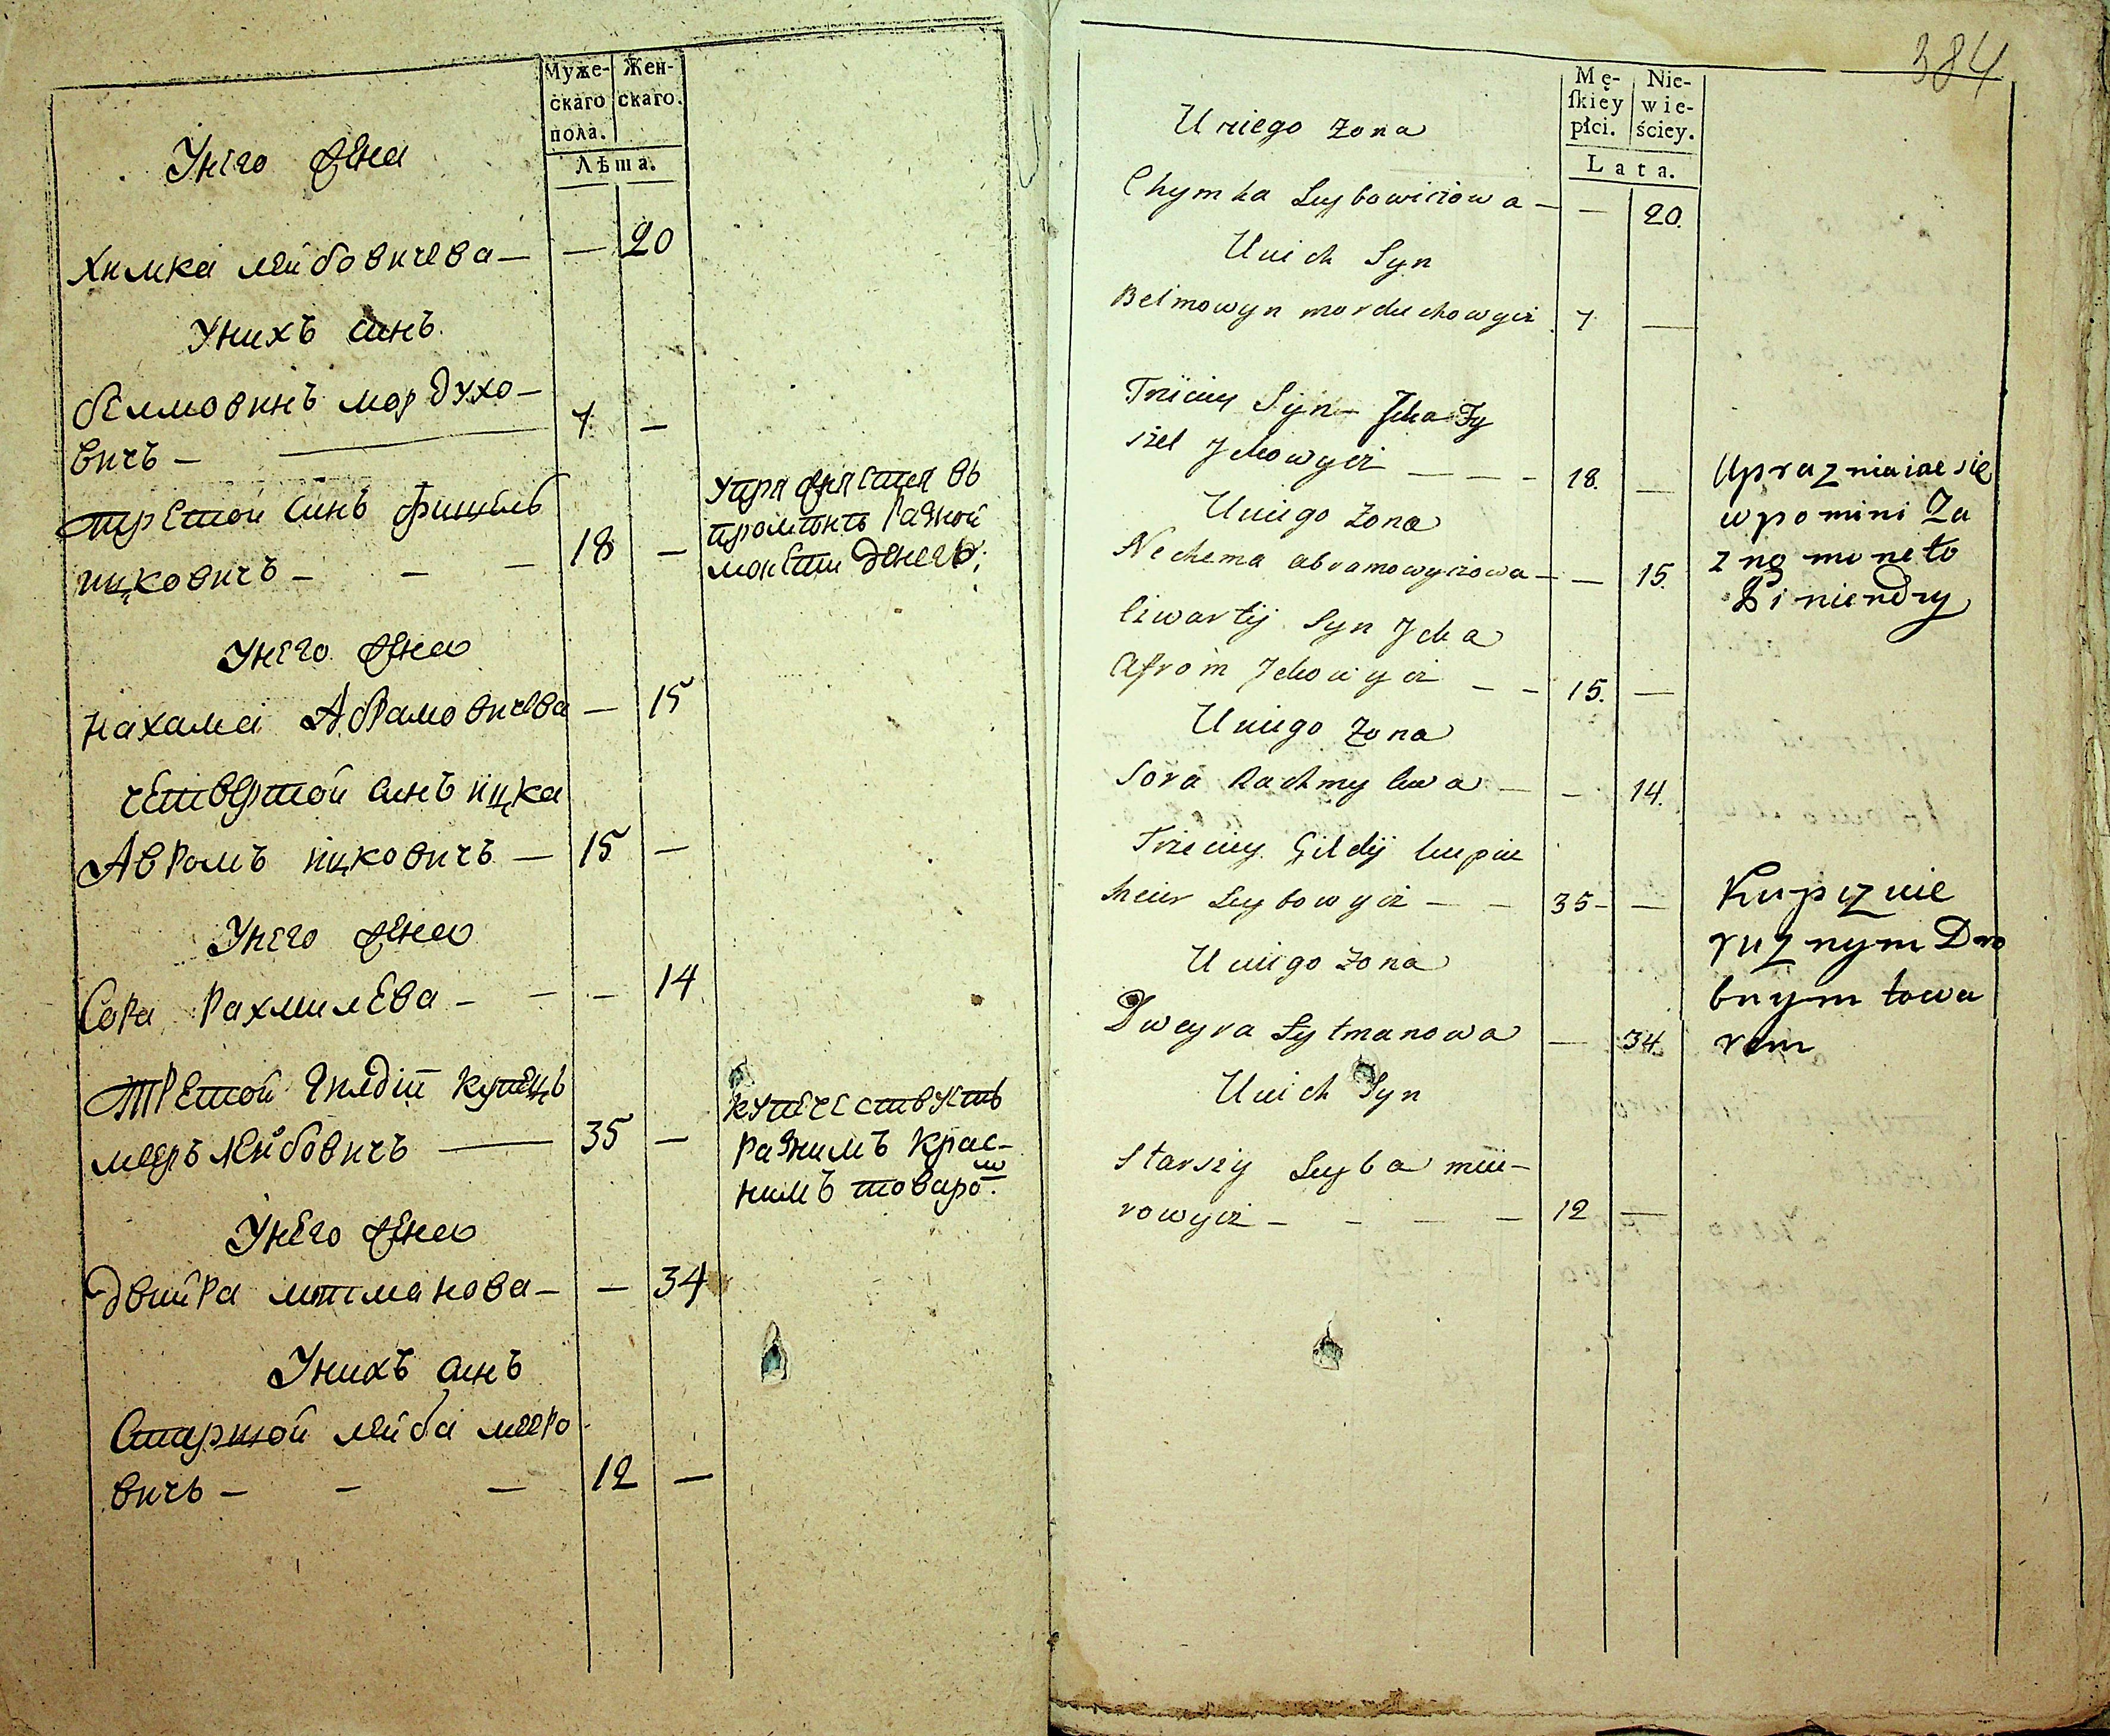 Муже-
скаго
пола.
Жен-
скаго.
Лѣта.
Унего жена
Химка лейбовичева — — 20
Унихъ синъ
белмовинъ мордухо-
вичъ — 1 —
третой синъ фишель
ицковичъ — — — 18 —
упражняется въ
промѣнѣ разной
монети денегъ.
Унего жена
нахама Абрамовичева — 15
четвертой синъ ицка
Авромъ ицковичъ — 15 —
Унего жена
Сора Рахмилева — — — 14
Третой гилдіи купецъ
мееръ лейбовичъ — 35 —
купечествуетъ
разнимъ крас-
нимъ товаромъ.
Унего жена
двейра литманова — — 34
Унихъ синъ
Старшой лейба меero
вичъ — — — 12 —
384
Mę-
ſkiey
płci.
Nie-
wie-
ściey.
Lata.
Uniego Zona
Chymka Leybowiczowa — — 20.
Unich Syn
Belmowyn morduchowycz 1 —
Trzeciy Syn Jcka Fy
szel Jckowycz — — — 18. —
Uprazniaiae sie
w pomini Za
zno moneto
Pi niendzy
Uniego Zona
Nechema abramowyczowa — — 15.
Czwartÿ Syn Jcka
Afrom Jckowycz — — 15. —
Uniego Zona
Sora Rachmylewa — — 14.
Trzeciey Gildÿ kupiec
Meier Leybowycz — — 35 — —
Kupczuie
ruznym Dro
bnym towa
rem
Uniego Zona
Dweyra Lytmanowa — 34.
Unich Syn
Starszy Leyba mei-
rowycz — — — — 12 —